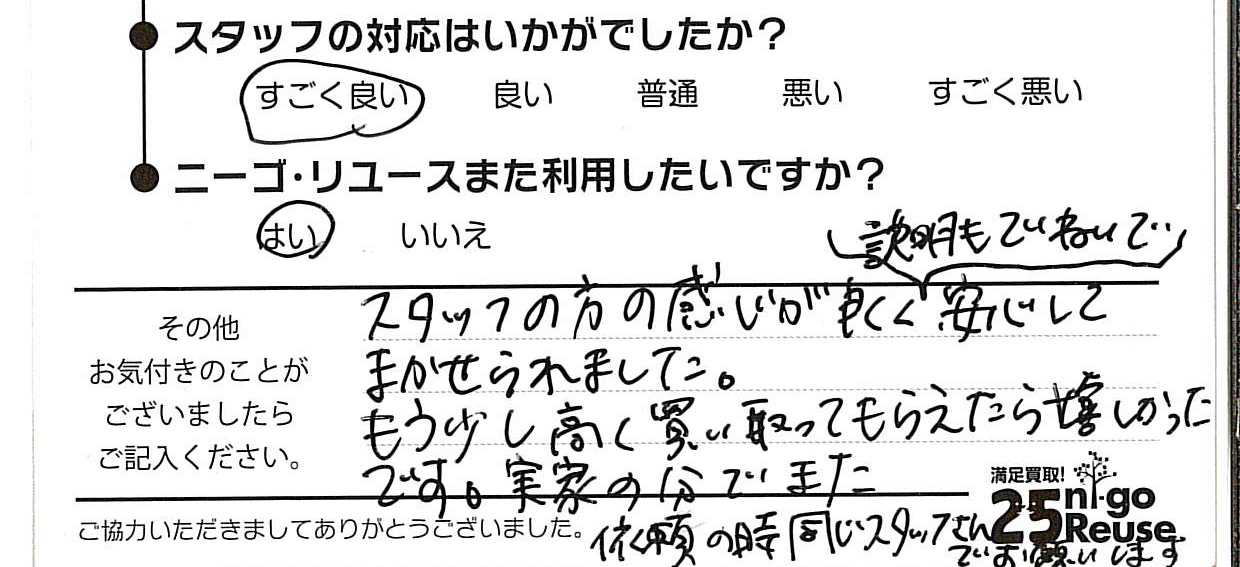 スタッフの対応はいかがでしたか?
すごく良い 良い 普通 悪い すごく悪い
ニーゴ・リユースまた利用したいですか?
はい いいえ
説明もていねいで
スタッフの方の感じが良く安心して
まかせられました。
もう少し高く買い取ってもらえたら嬉しかった
です。実家の分でまた
依頼の時同じスタッフさん
でお願いします
その他
お気付きのことが
ございましたら
ご記入ください。
ご協力いただきましてありがとうございました。
満足買取!
25 ni-go
Reuse